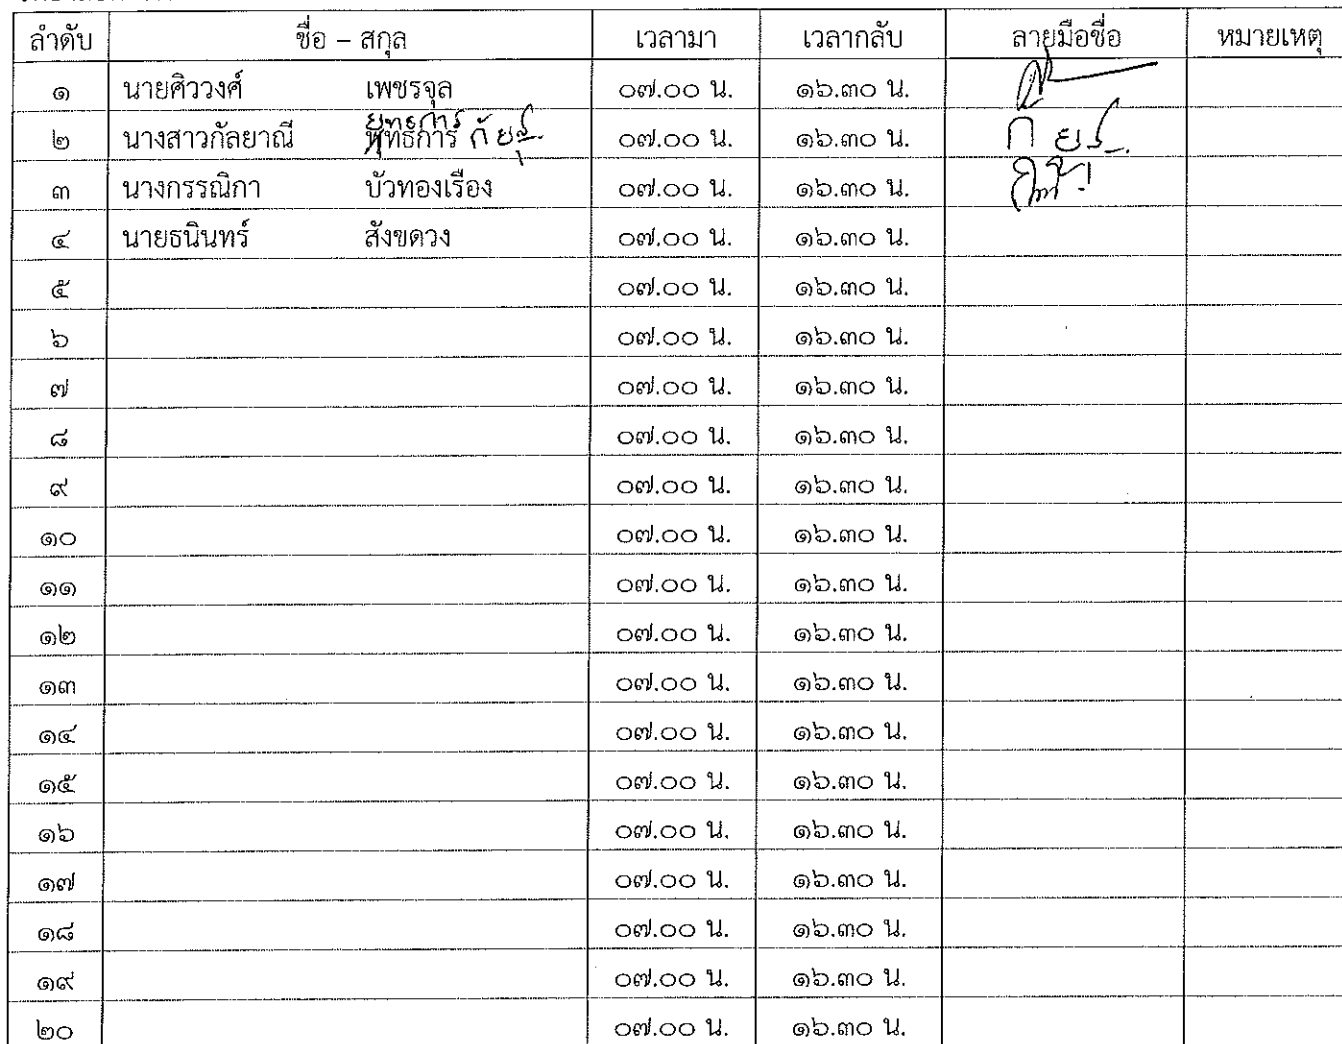 ลำดับ ชื่อ – สกุล เวลามา เวลากลับ ลายมือชื่อ หมายเหตุ
๑ นายศิววงศ์ เพชรจุล ๐๗.๐๐ น. ๑๖.๓๐ น.
ยุทธการ
๒ นางสาวกัลยาณี พุทธิการ ๐๗.๐๐ น. ๑๖.๓๐ น.
๓ นางกรรณิกา บัวทองเรือง ๐๗.๐๐ น. ๑๖.๓๐ น.
๔ นายธนินทร์ สังขดวง ๐๗.๐๐ น. ๑๖.๓๐ น.
๕ ๐๗.๐๐ น. ๑๖.๓๐ น.
๖ ๐๗.๐๐ น. ๑๖.๓๐ น.
๗ ๐๗.๐๐ น. ๑๖.๓๐ น.
๘ ๐๗.๐๐ น. ๑๖.๓๐ น.
๙ ๐๗.๐๐ น. ๑๖.๓๐ น.
๑๐ ๐๗.๐๐ น. ๑๖.๓๐ น.
๑๑ ๐๗.๐๐ น. ๑๖.๓๐ น.
๑๒ ๐๗.๐๐ น. ๑๖.๓๐ น.
๑๓ ๐๗.๐๐ น. ๑๖.๓๐ น.
๑๔ ๐๗.๐๐ น. ๑๖.๓๐ น.
๑๕ ๐๗.๐๐ น. ๑๖.๓๐ น.
๑๖ ๐๗.๐๐ น. ๑๖.๓๐ น.
๑๗ ๐๗.๐๐ น. ๑๖.๓๐ น.
๑๘ ๐๗.๐๐ น. ๑๖.๓๐ น.
๑๙ ๐๗.๐๐ น. ๑๖.๓๐ น.
๒๐ ๐๗.๐๐ น. ๑๖.๓๐ น.